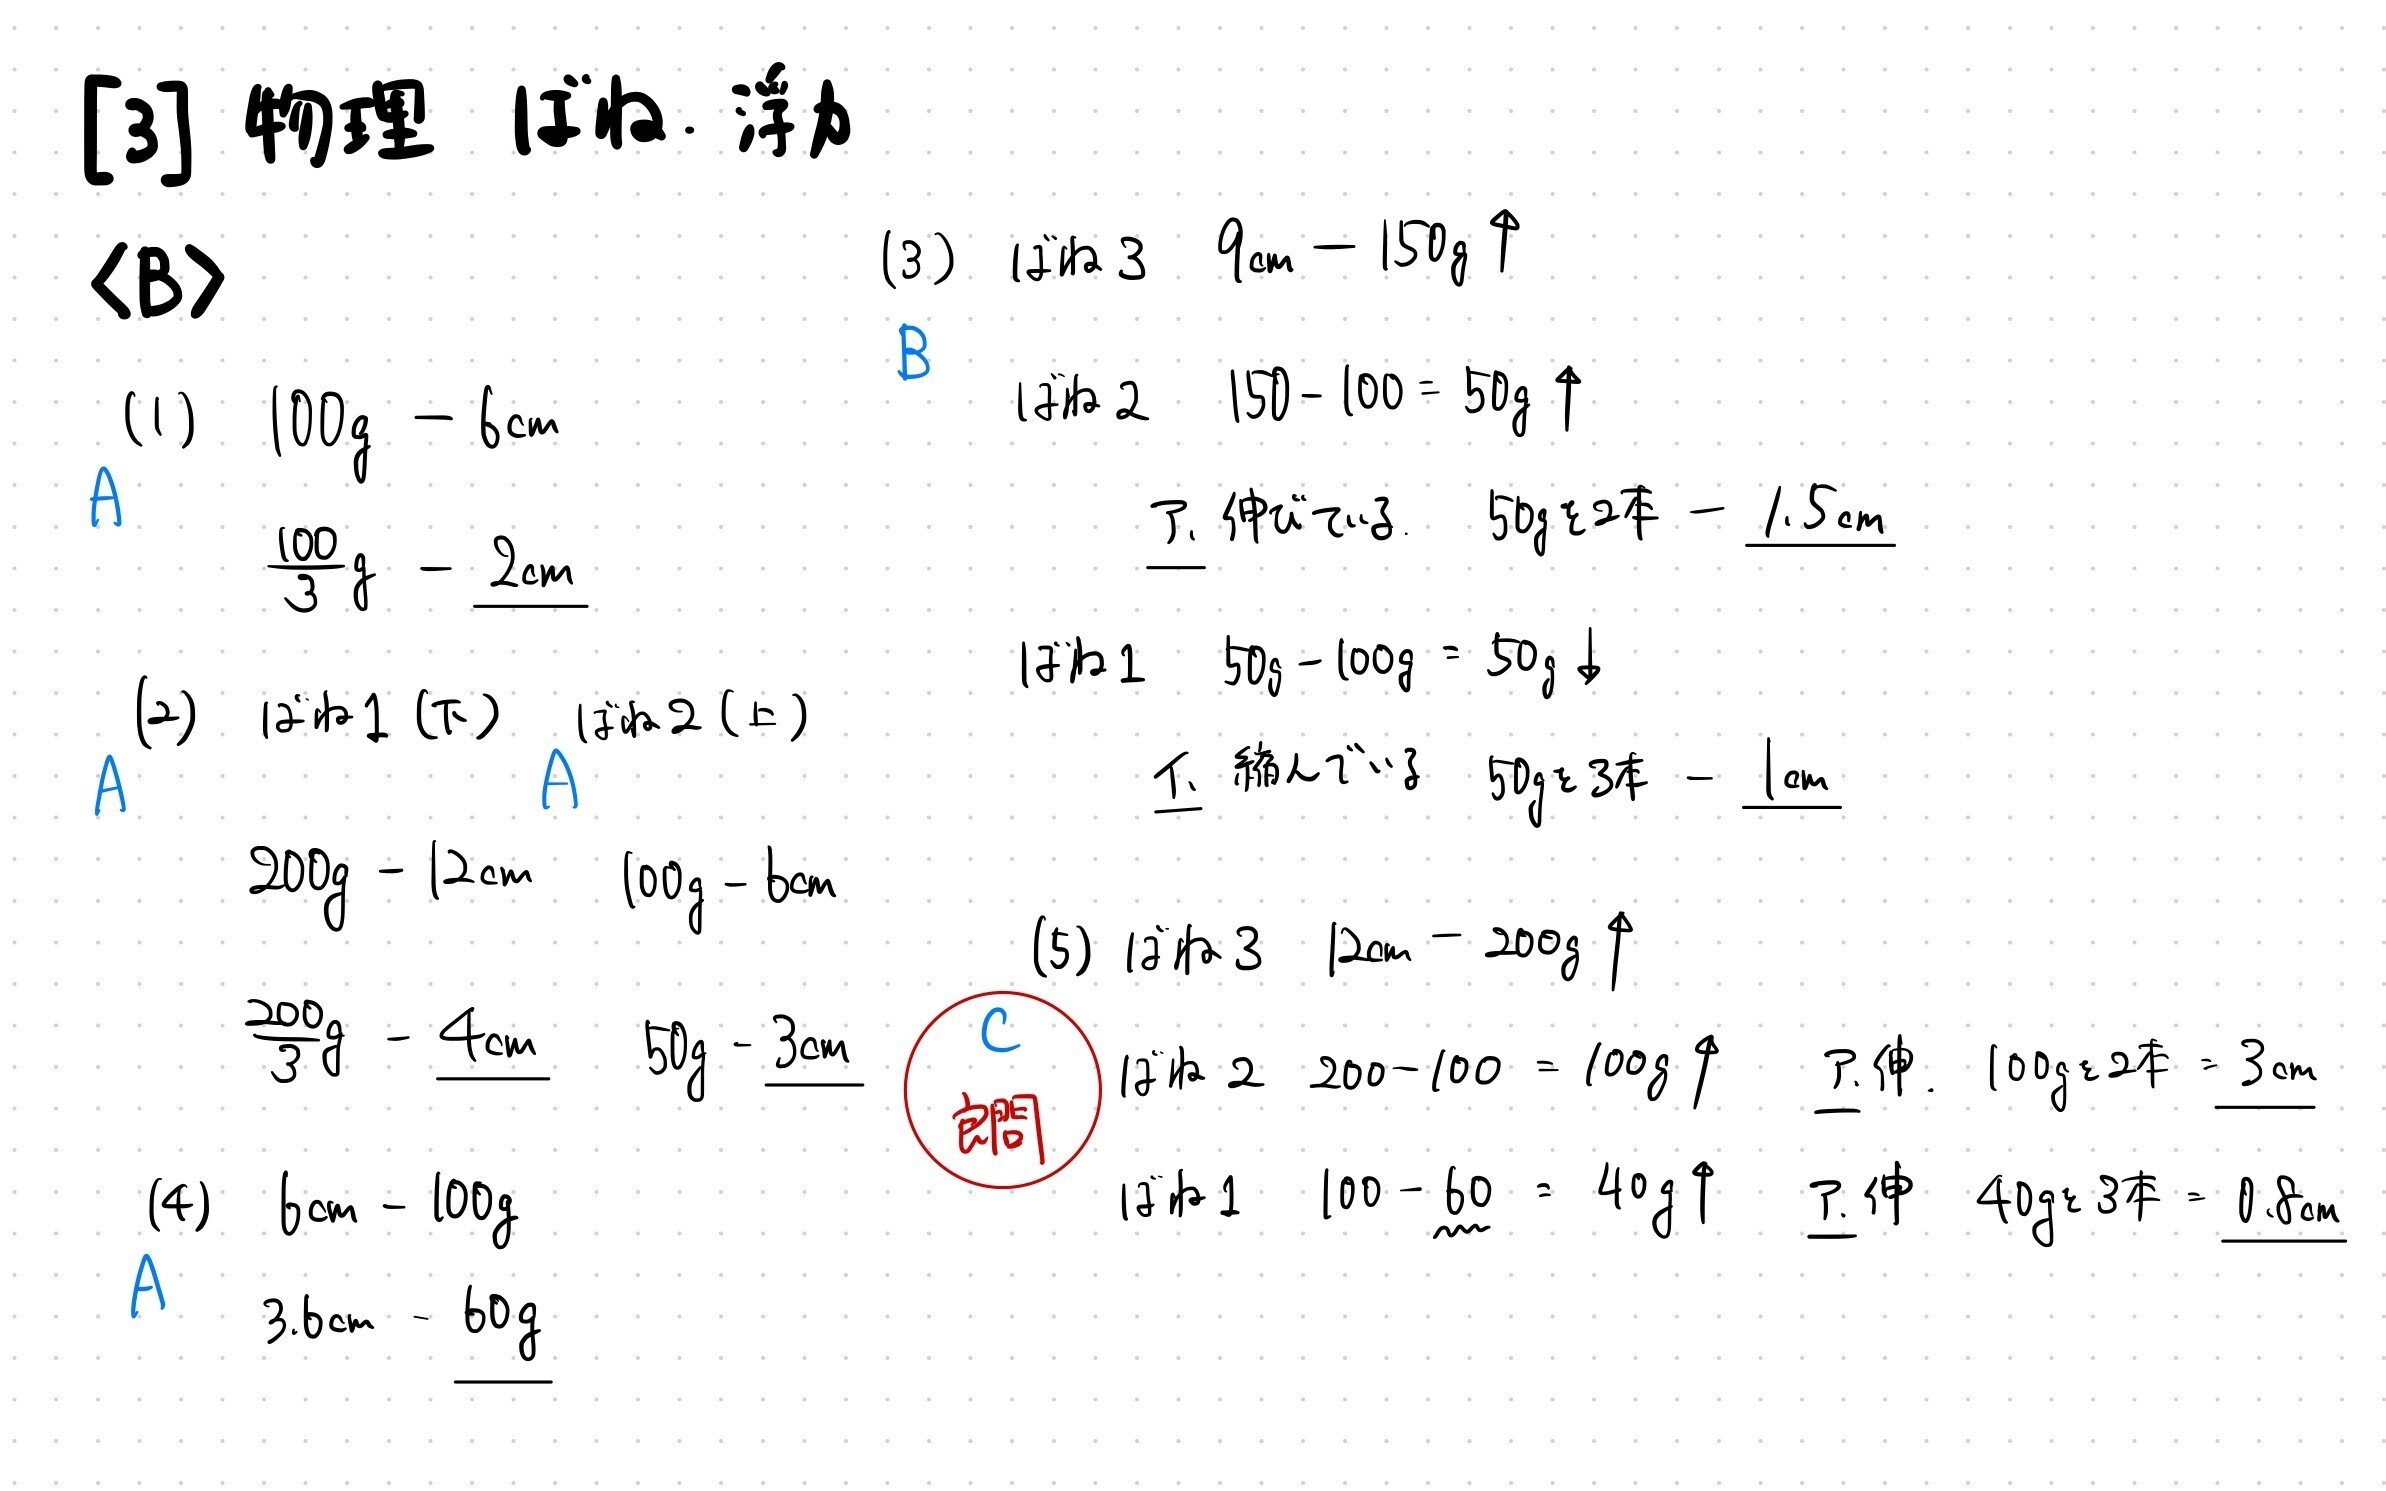 [3] 物理 ばね・浮力
<B>
(1) 100g − 6cm
A
100/3 g − 2cm
(2) ばね1(下) ばね2(上)
A A
200g − 12cm 100g − 6cm
200/3 g − 4cm 50g − 3cm
(4) 6cm − 100g
A
3.6cm − 60g
(3) ばね3 9cm − 150g ↑
B
ばね2 150 − 100 = 50g ↑
ア、伸びている. 50gを2本 − 1.5cm
ばね1 50g − 100g = 50g ↓
イ、縮んでいる 50gを3本 − 1cm
(5) ばね3 12cm − 200g ↑
C
良問
ばね2 200 − 100 = 100g ↑ ア.伸. 100gを2本 = 3cm
ばね1 100 − 60 = 40g ↑ ア.伸 40gを3本 = 0.8cm